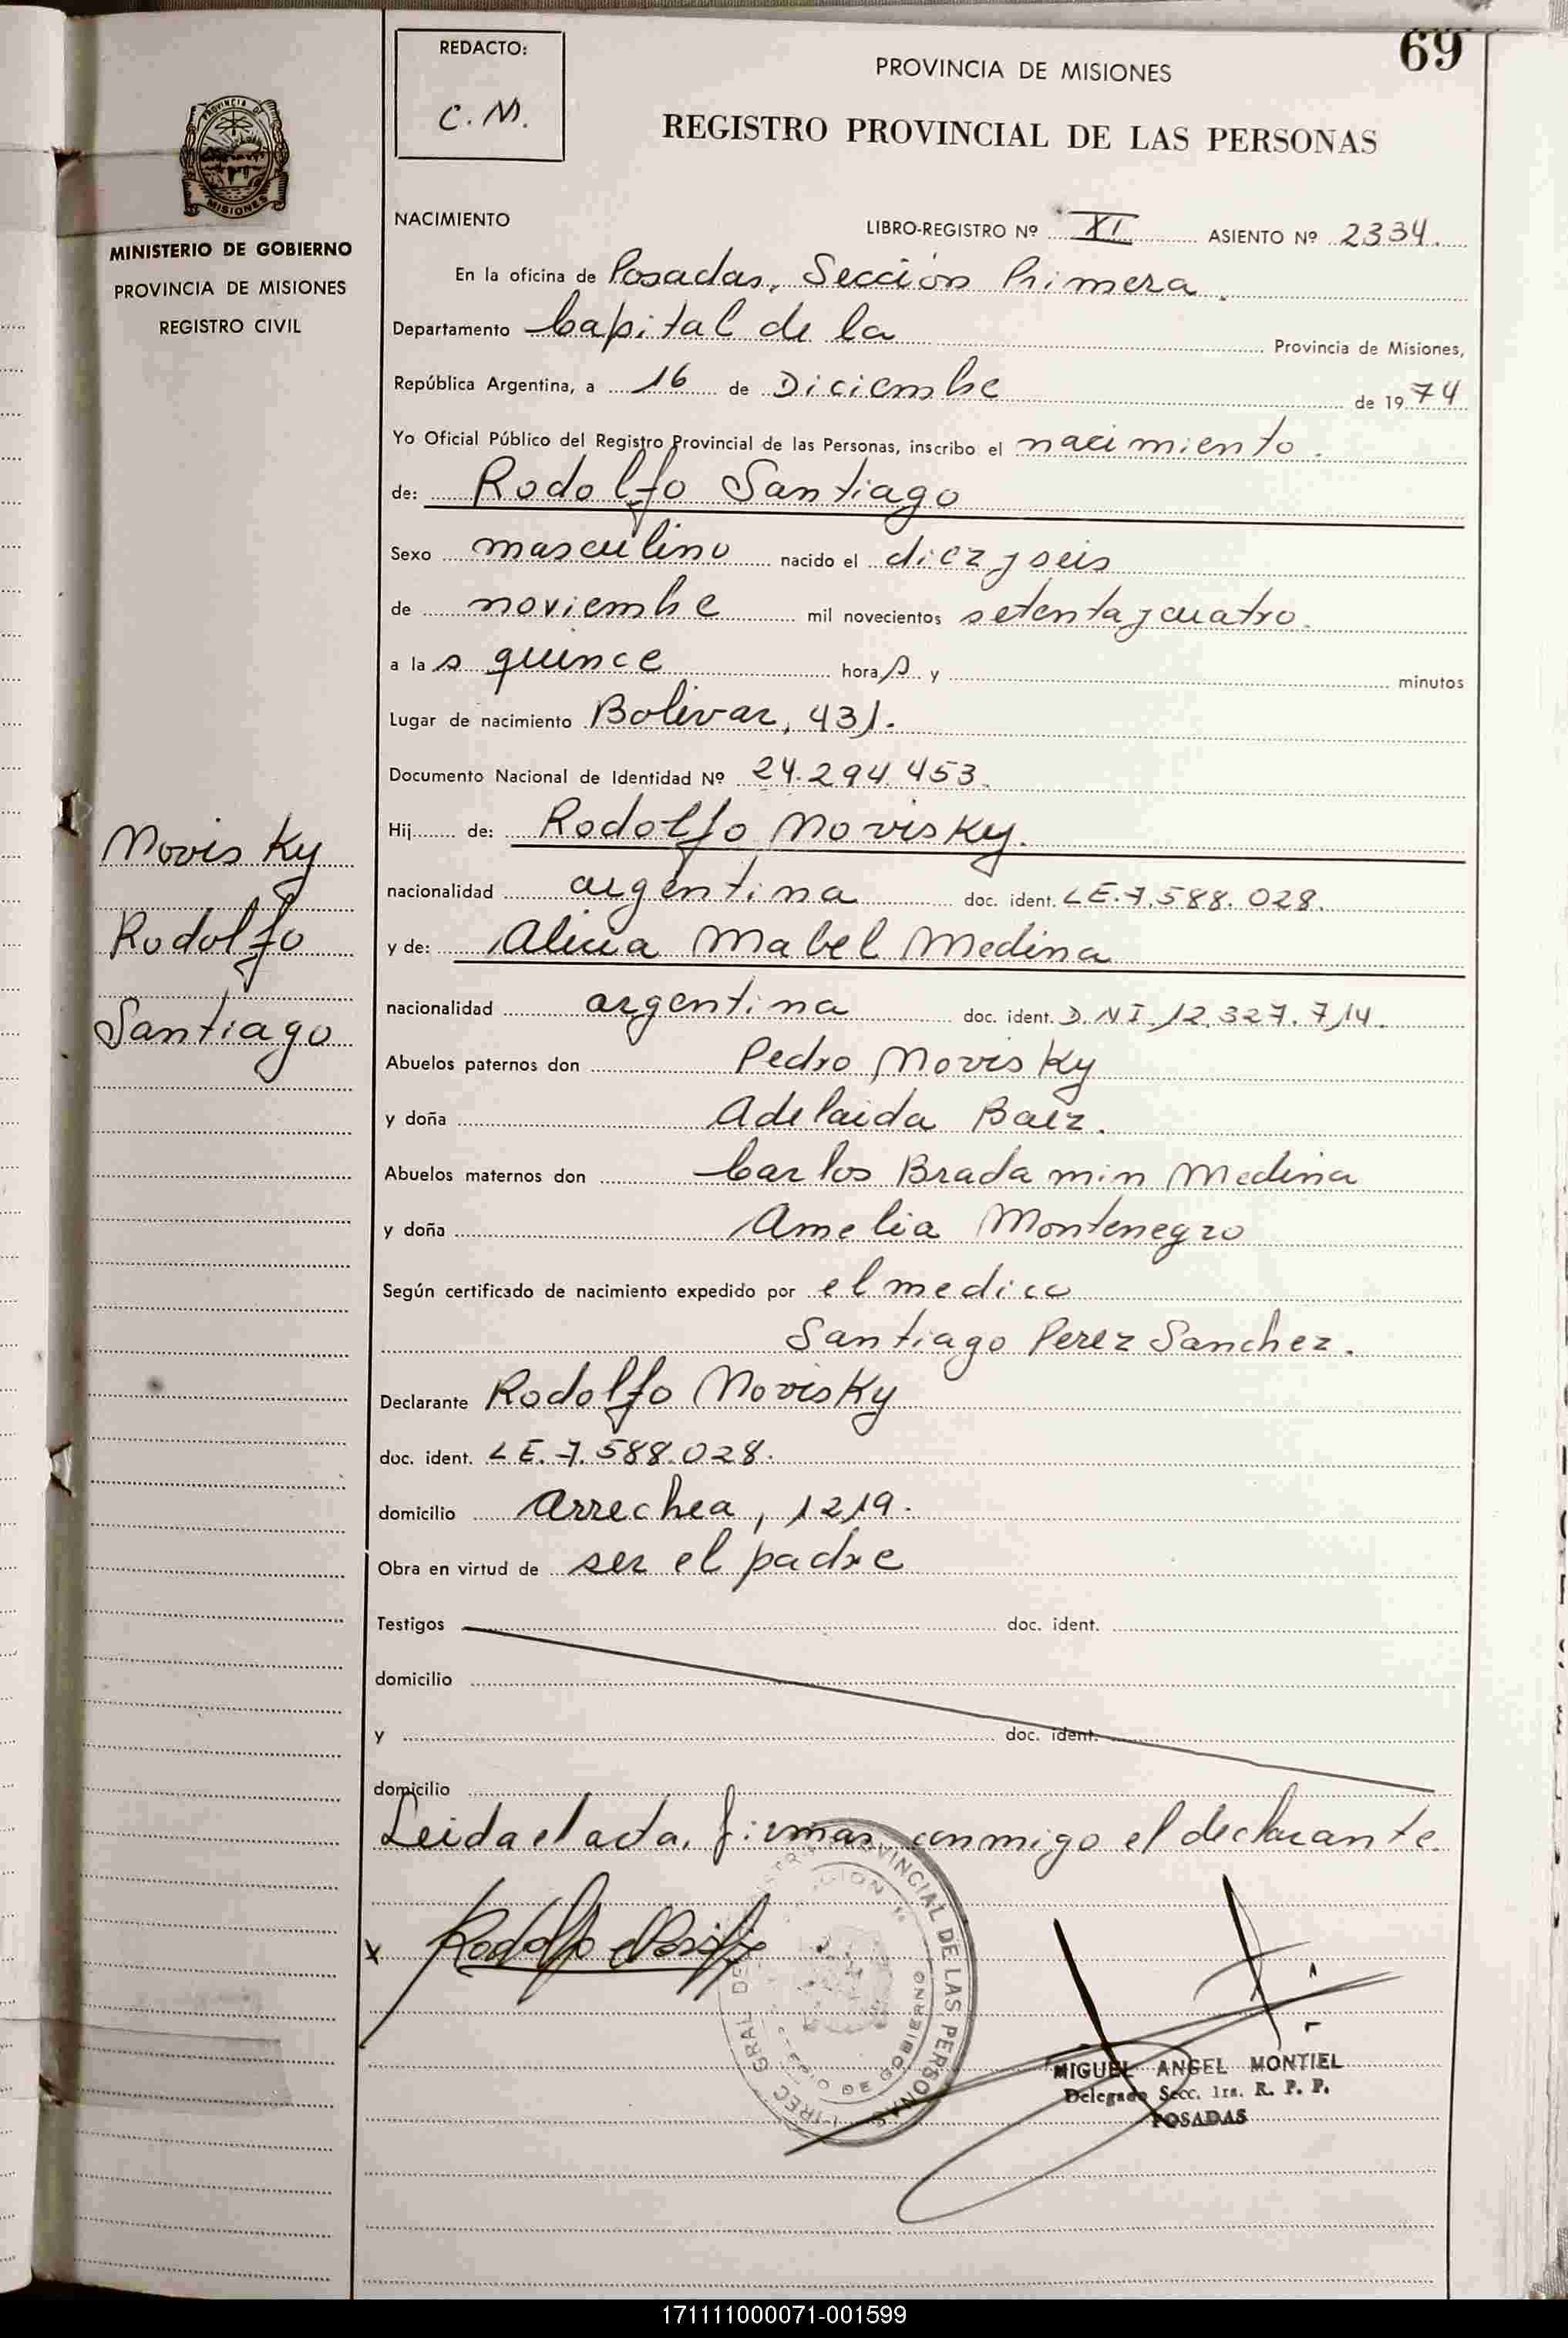 69
REDACTO:
C. M.
PROVINCIA DE MISIONES
REGISTRO PROVINCIAL DE LAS PERSONAS
PROVINCIA DE
MISIONES
MINISTERIO DE GOBIERNO
PROVINCIA DE MISIONES
REGISTRO CIVIL
NACIMIENTO LIBRO-REGISTRO Nº XI ASIENTO Nº 2334.
En la oficina de Posadas, Sección Primera.
Departamento Capital de la Provincia de Misiones,
República Argentina, a 16 de Diciembre de 1974
Yo Oficial Público del Registro Provincial de las Personas, inscribo el nacimiento.
de: Rodolfo Santiago
Sexo masculino nacido el diez y seis
de noviembre mil novecientos setenta y cuatro.
a las quince horas y minutos
Lugar de nacimiento Bolivar, 431.
Documento Nacional de Identidad Nº 24.294.453.
Hij de: Rodolfo Movisky.
nacionalidad argentina doc. ident. LE.7.588.028.
y de: Alicia Mabel Medina
nacionalidad argentina doc. ident. D.N.I. 12.327.714.
Abuelos paternos don Pedro Movisky
y doña Adelaida Baez.
Abuelos maternos don Carlos Bradamin Medina
y doña Amelia Montenegro
Según certificado de nacimiento expedido por el medico
Santiago Perez Sanchez.
Declarante Rodolfo Movisky
doc. ident. LE.7.588.028.
domicilio Arrechea, 1219.
Obra en virtud de ser el padre
Testigos doc. ident.
domicilio
y doc. ident.
domicilio
Leida el acta, firman conmigo el declarante.
Movisky
Rodolfo
Santiago
x Rodolfo
PROVINCIAL DE LAS PERSONAS
DE GOBIERNO
MIGUEL ANGEL MONTIEL
Delegado Secc. 1ra. R. P. P.
POSADAS
171111000071-001599